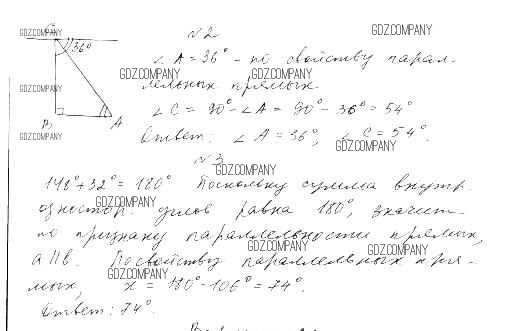 №2
GDZ.COMPANY
C
GDZ.COMPANY
36°
∠A = 36° - по свойству парал-
GDZ.COMPANY GDZ.COMPANY
GDZ.COMPANY
лельных прямых
∠C = 90° - ∠A = 90° - 36° = 54°
B A
GDZ.COMPANY
Ответ: ∠A = 36°, ∠C = 54°.
GDZ.COMPANY
№3
GDZ.COMPANY
148° + 32° = 180° Поскольку сумма внутр.
GDZ.COMPANY
одностор. углов равна 180°, значит
по признаку параллельности прямых,
GDZ.COMPANY GDZ.COMPANY
a||b. По свойству параллельных пря-
GDZ.COMPANY
мых, x = 180° - 106° = 74°.
Ответ: 74°.